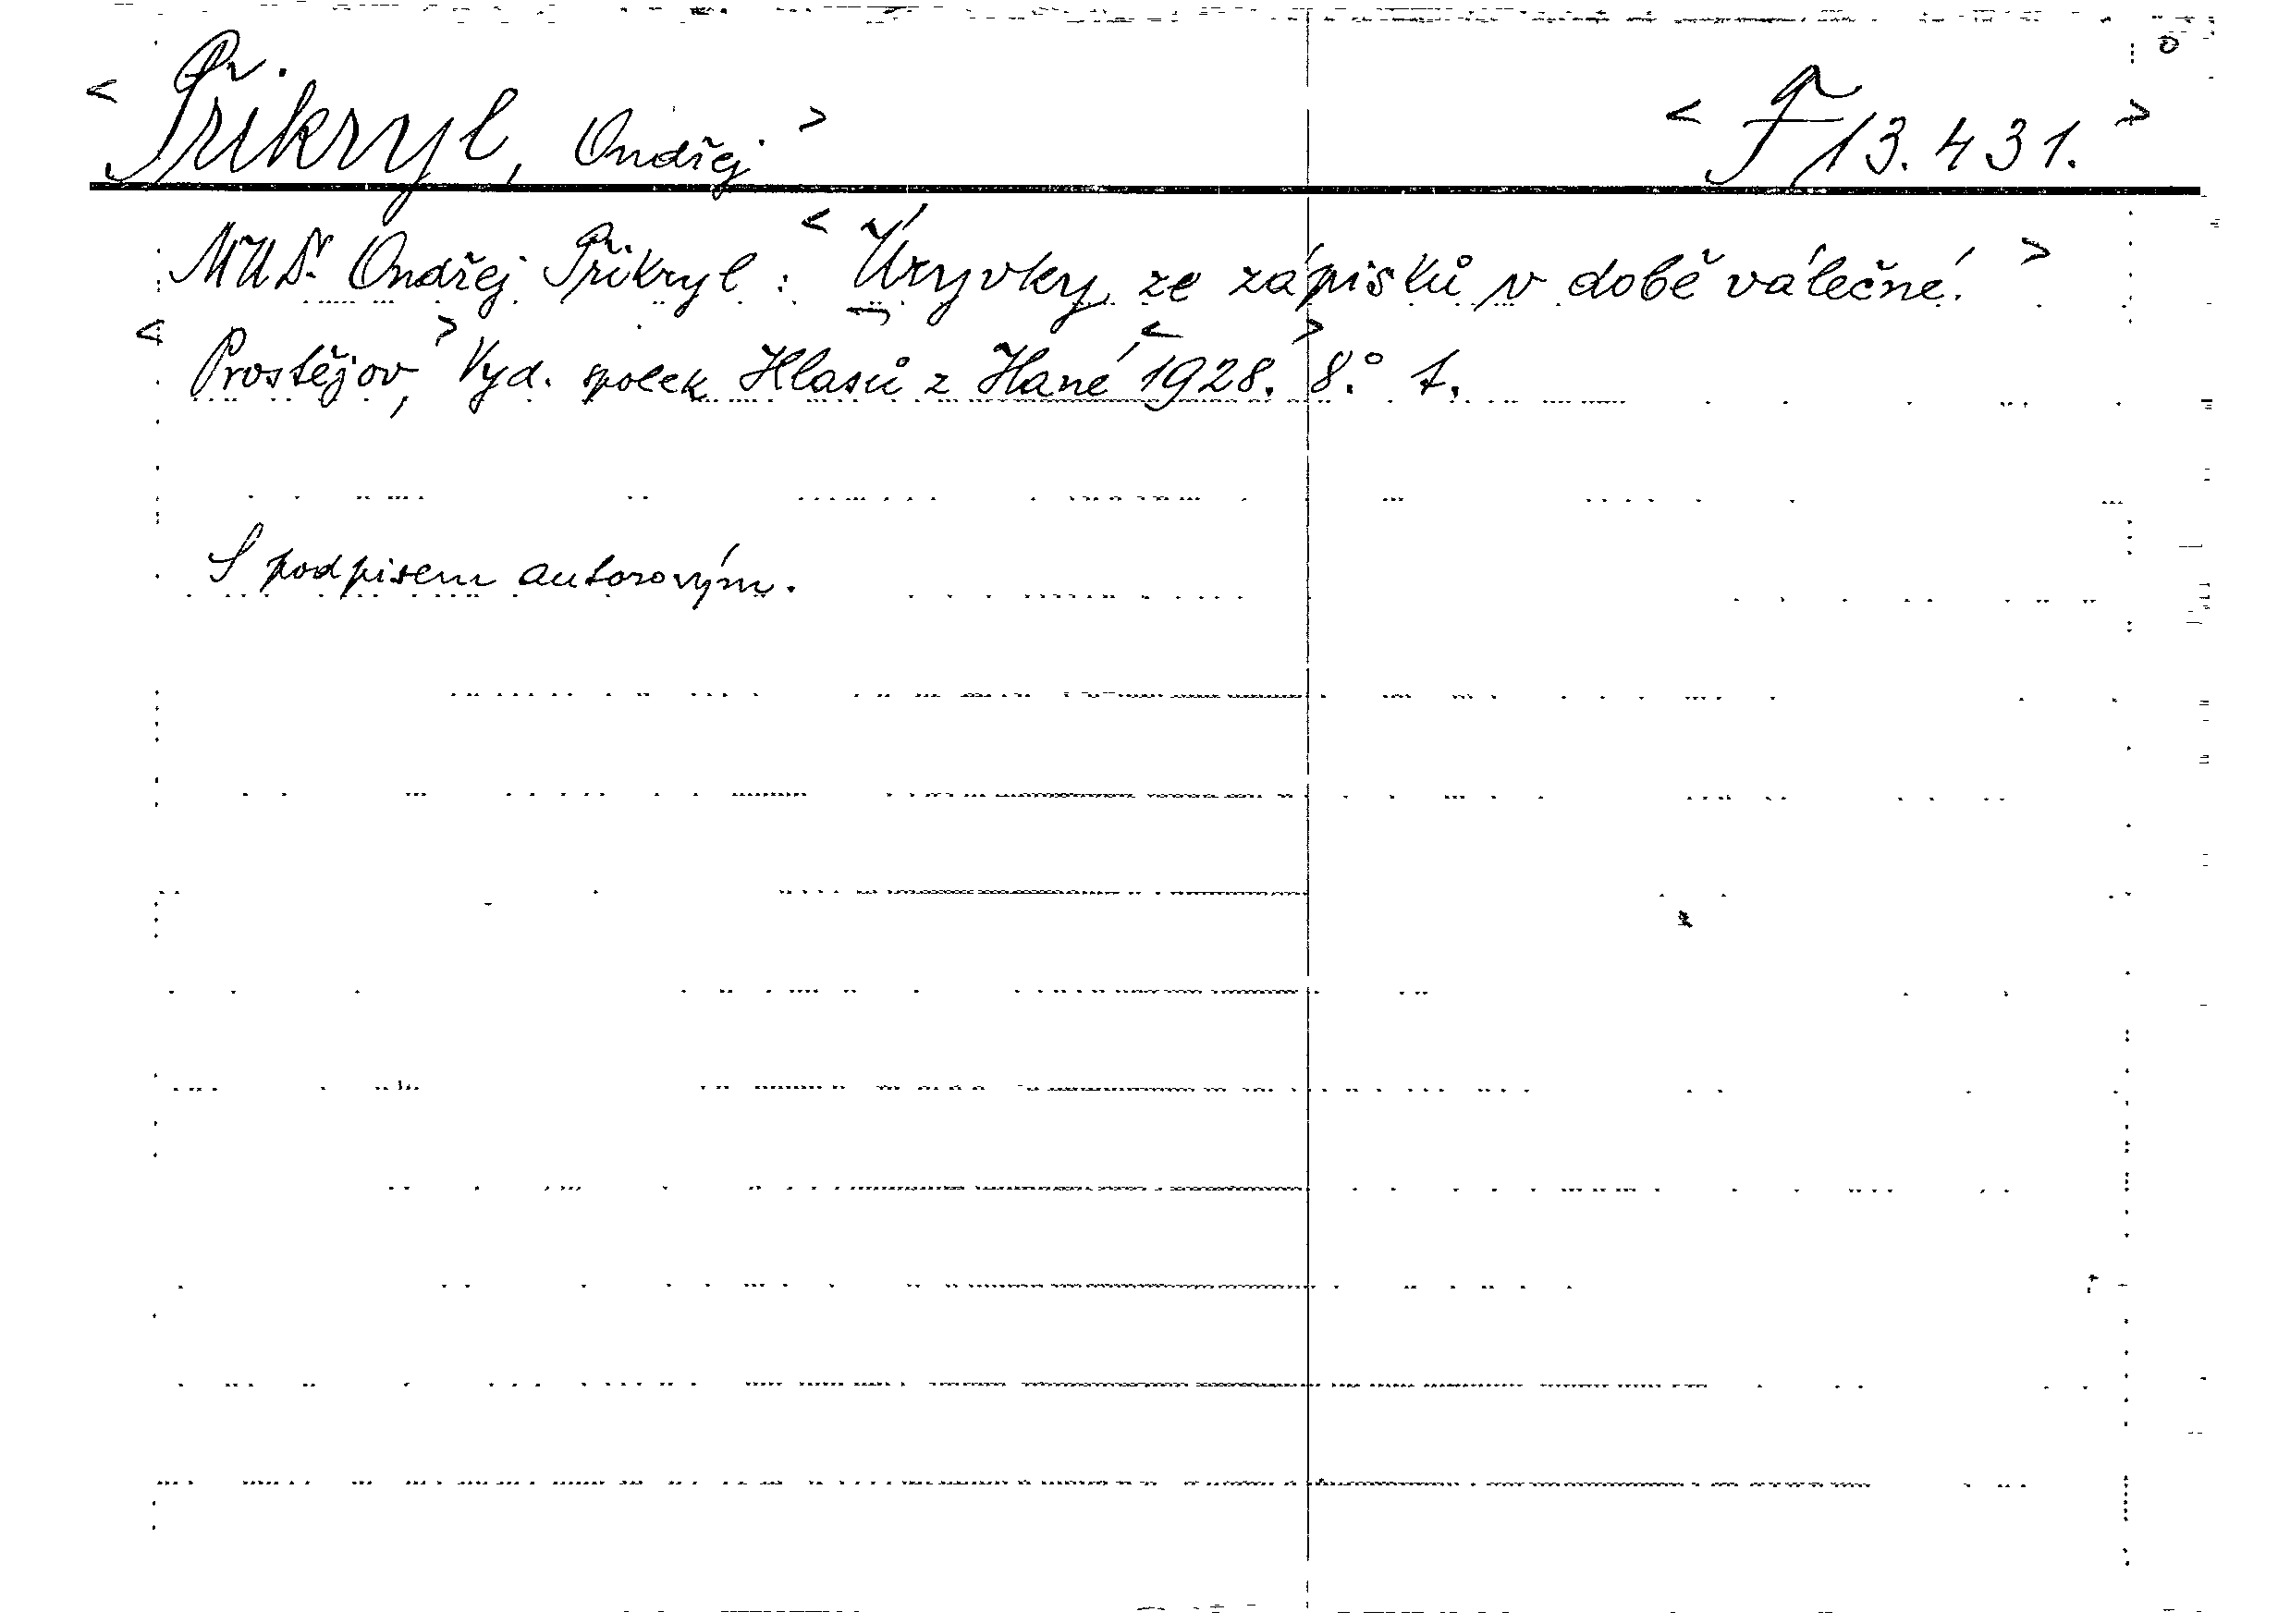 < Přikryl, Ondřej > < F 13.431. >
MUDr. Ondřej Přikryl : < Úryvky ze zápisků v době válečné. >
< Prostějov, > Vyd. spolek Hlasů z Hané < 1928. > 8.° 1.
S podpisem autorovým.